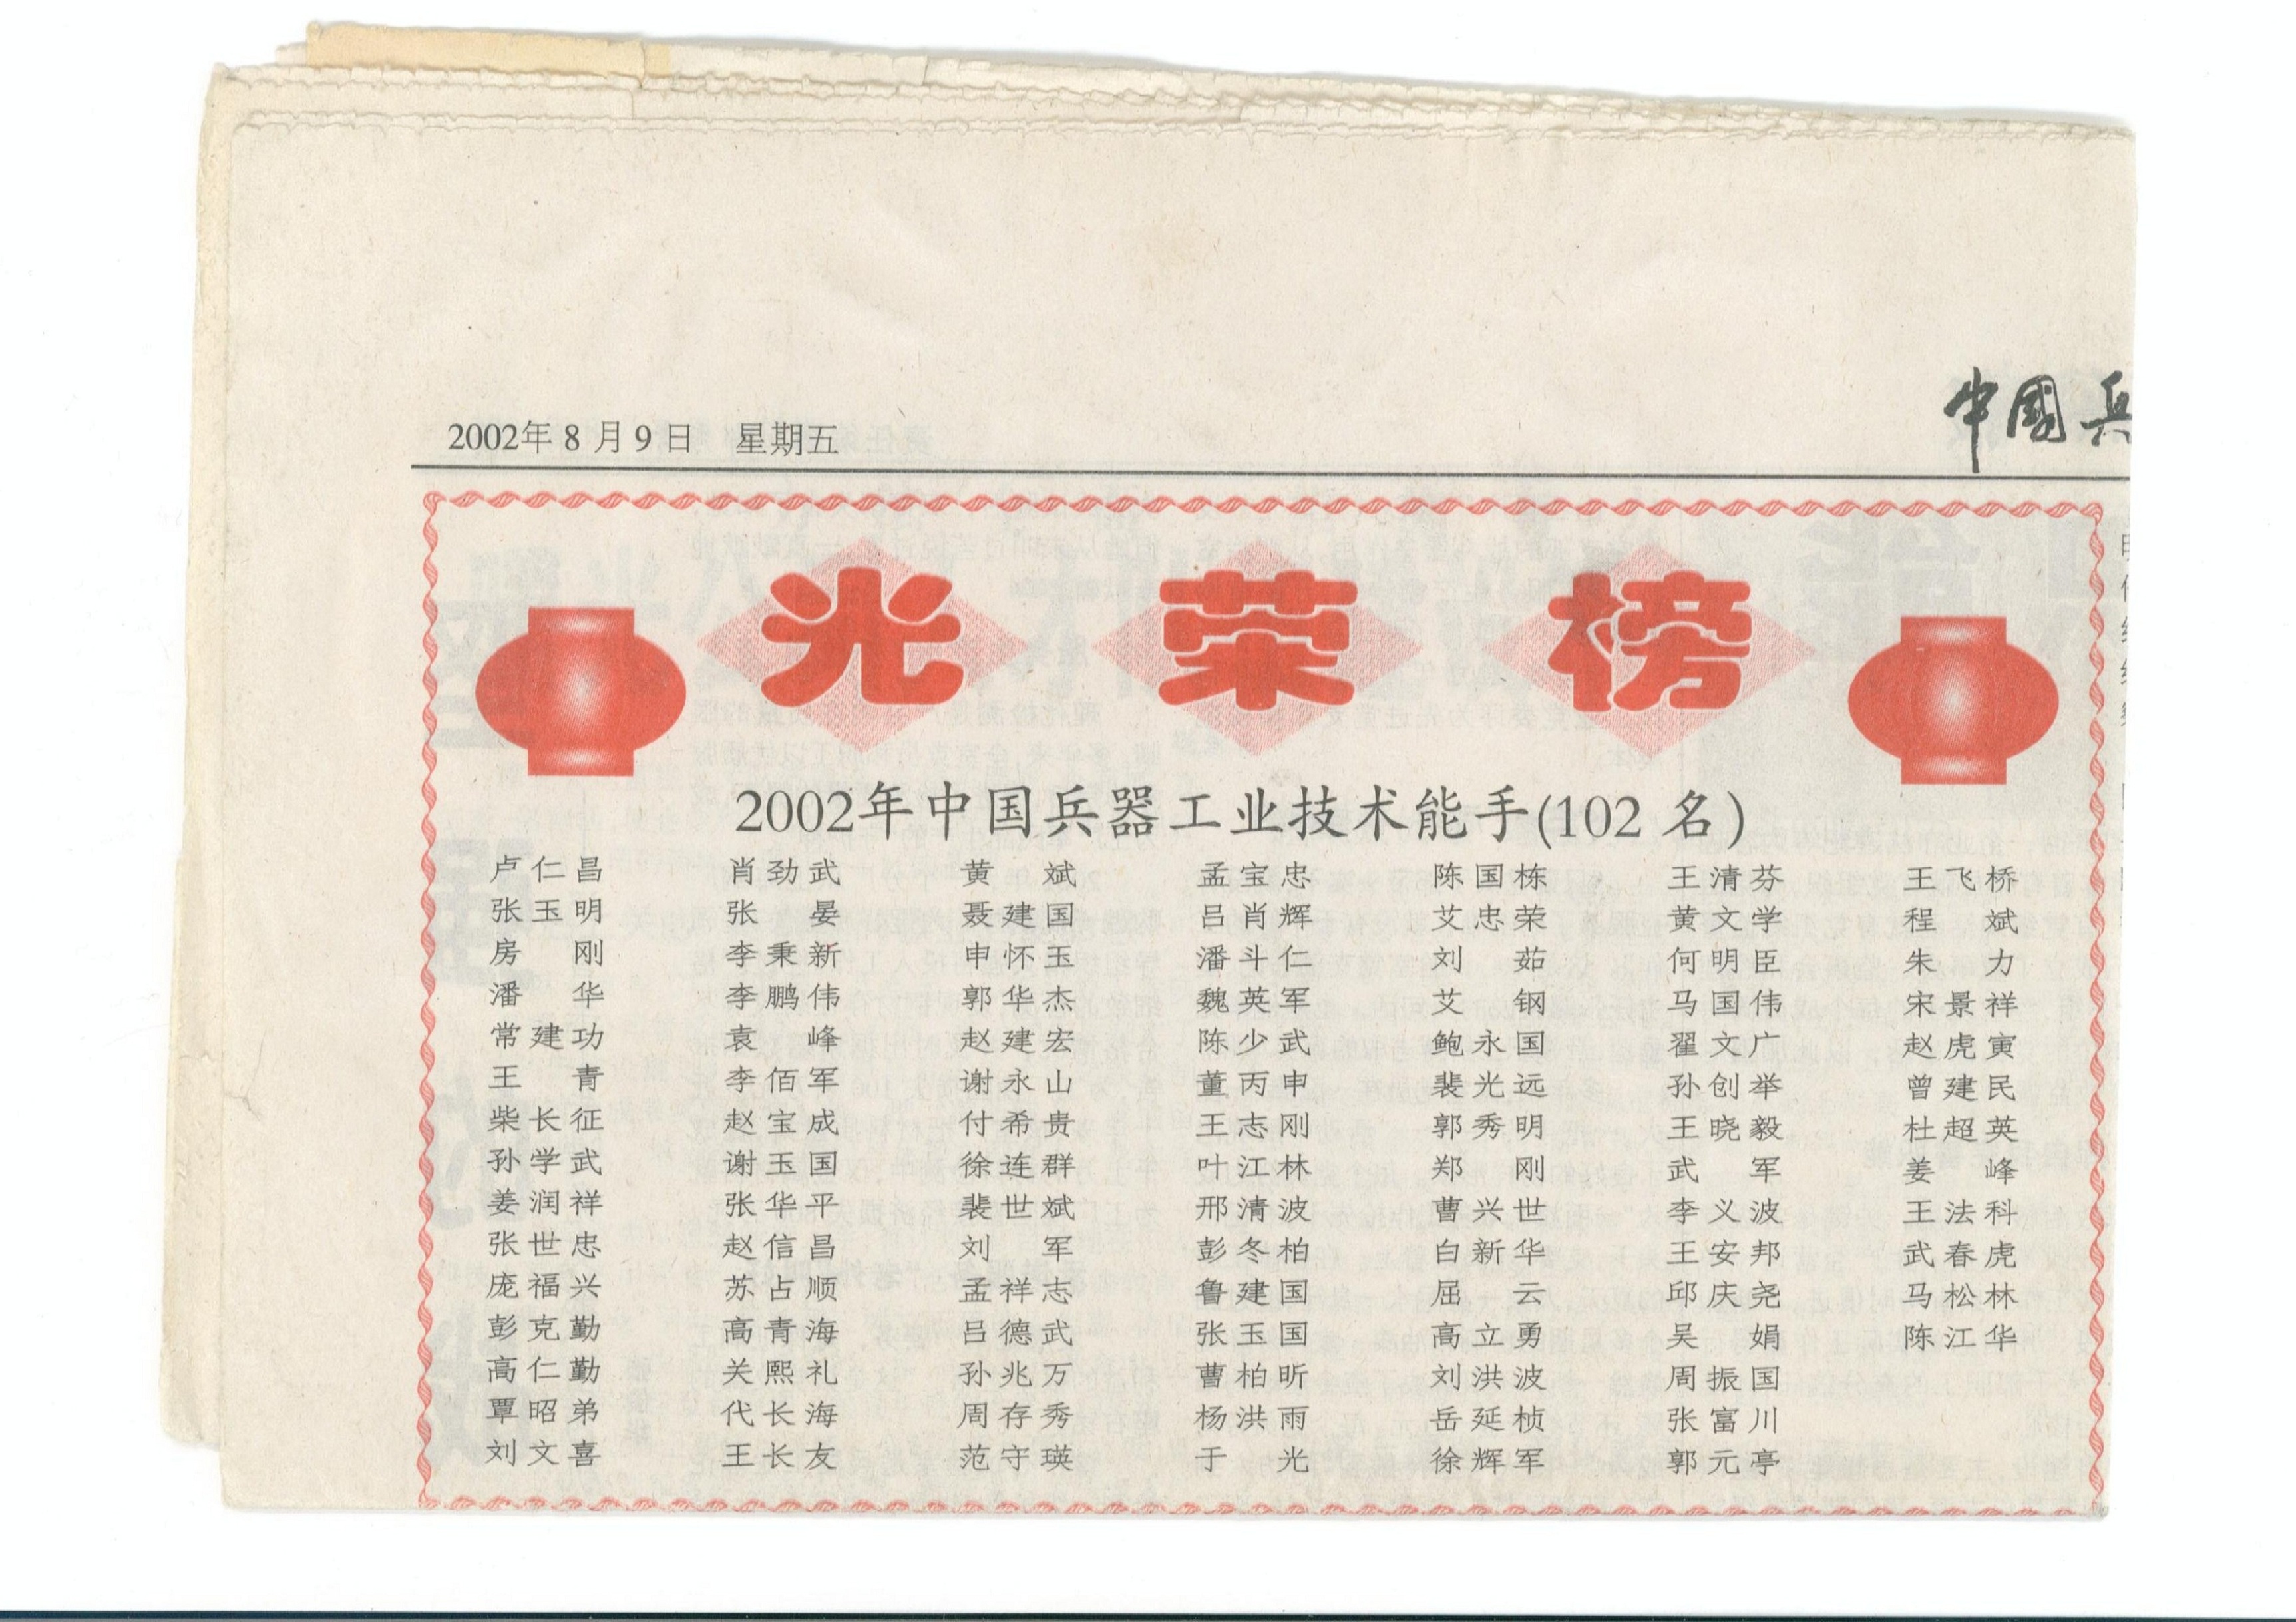 2002年8月9日 星期五 中國兵
光荣榜
2002年中国兵器工业技术能手(102名)
卢仁昌 肖劲武 黄 斌 孟宝忠 陈国栋 王清芬 王飞桥
张玉明 张 晏 聂建国 吕肖辉 艾忠荣 黄文学 程 斌
房 刚 李秉新 申怀玉 潘斗仁 刘 茹 何明臣 朱 力
潘 华 李鹏伟 郭华杰 魏英军 艾 钢 马国伟 宋景祥
常建功 袁 峰 赵建宏 陈少武 鲍永国 翟文广 赵虎寅
王 青 李佰军 谢永山 董丙申 裴光远 孙创举 曾建民
柴长征 赵宝成 付希贵 王志刚 郭秀明 王晓毅 杜超英
孙学武 谢玉国 徐连群 叶江林 郑 刚 武 军 姜 峰
姜润祥 张华平 裴世斌 邢清波 曹兴世 李义波 王法科
张世忠 赵信昌 刘 军 彭冬柏 白新华 王安邦 武春虎
庞福兴 苏占顺 孟祥志 鲁建国 屈 云 邱庆尧 马松林
彭克勤 高青海 吕德武 张玉国 高立勇 吴 娟 陈江华
高仁勤 关熙礼 孙兆万 曹柏昕 刘洪波 周振国
覃昭弟 代长海 周存秀 杨洪雨 岳延桢 张富川
刘文喜 王长友 范守瑛 于 光 徐辉军 郭元亭